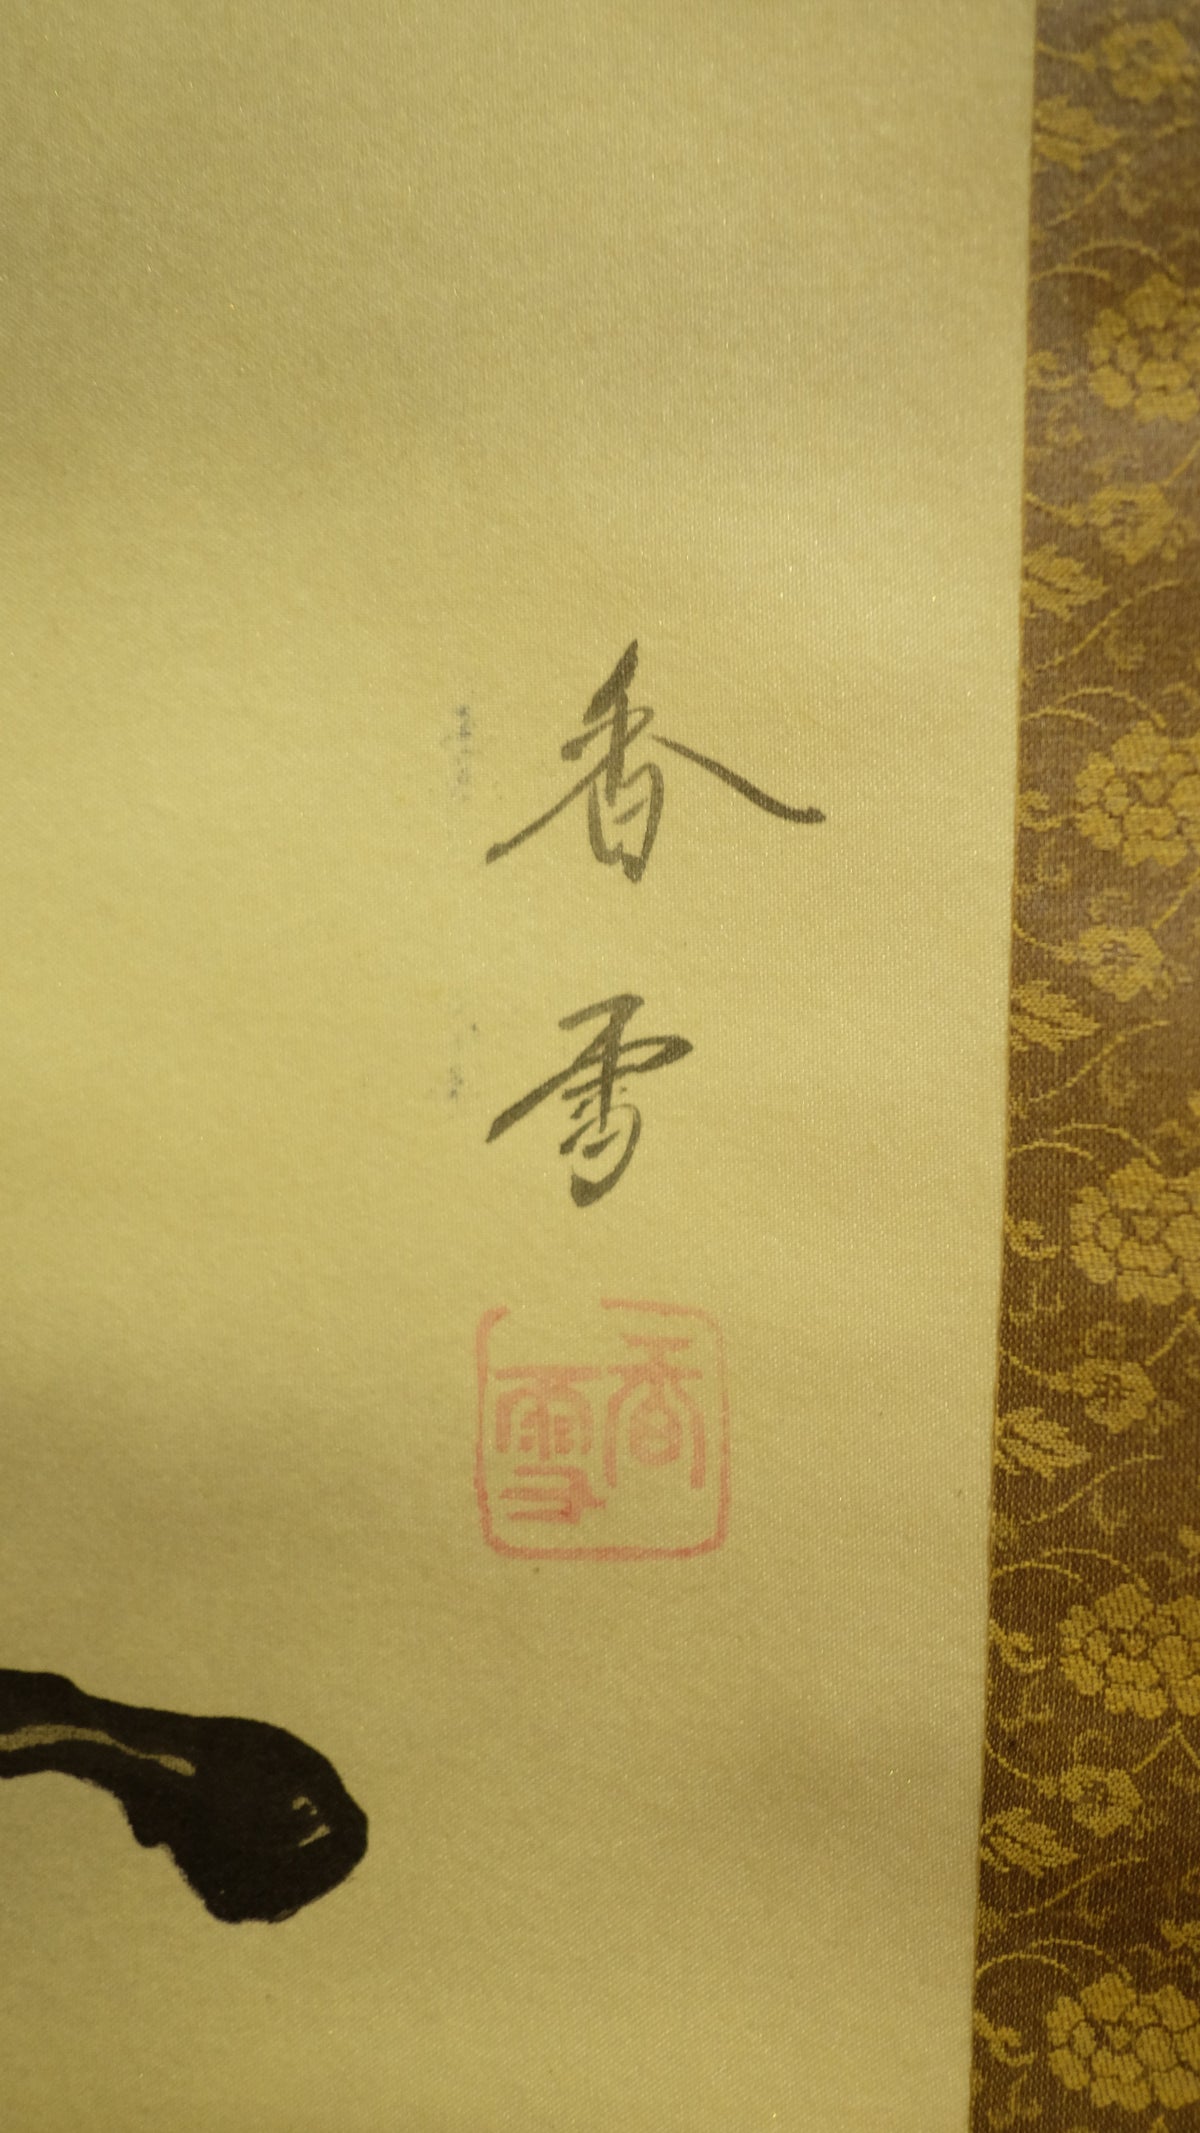 香雪
香雪